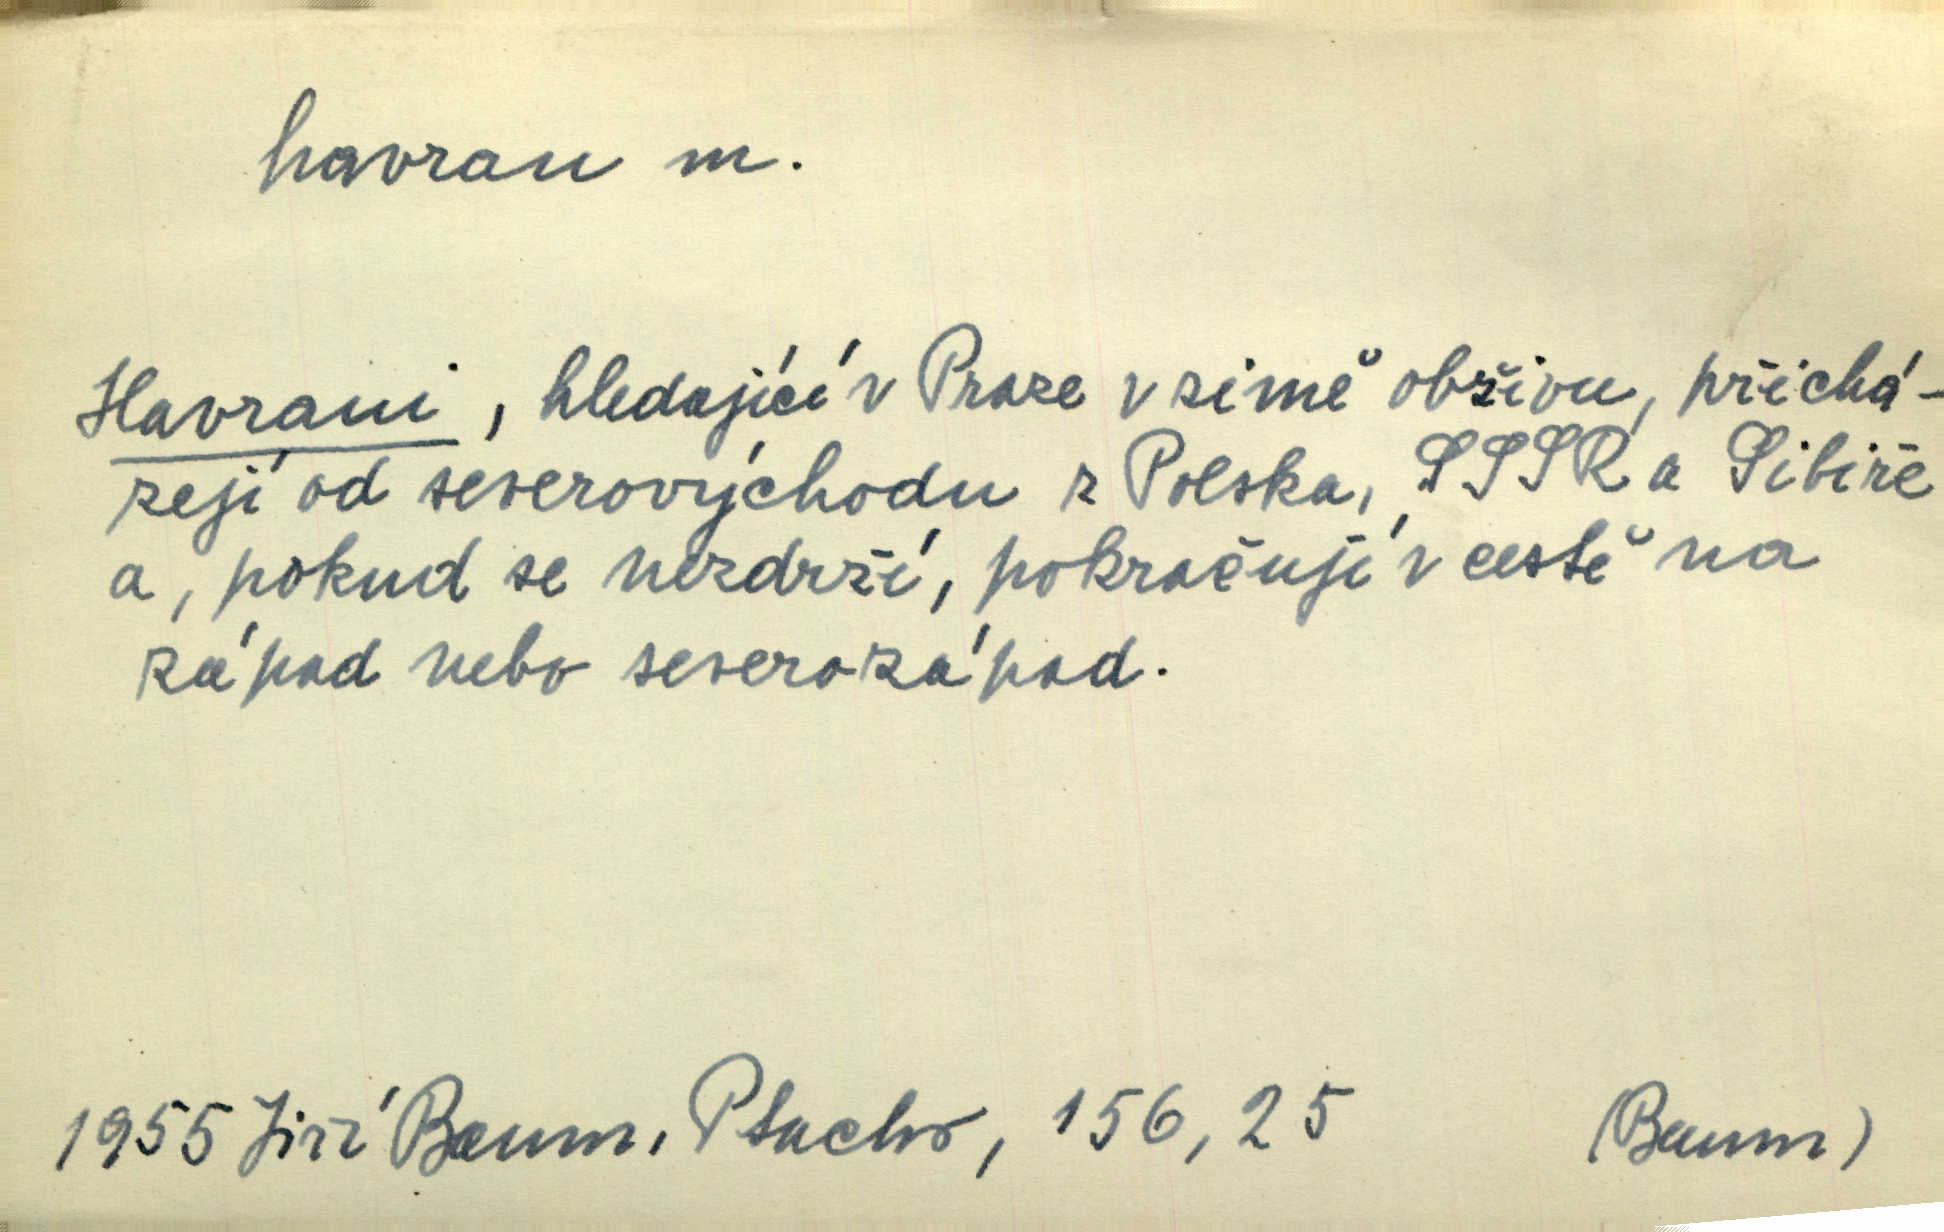 havran m.
Havrani, hledající v Praze v zimě obživu, přichá-
zejí od severovýchodu z Polska, SSSR a Sibiře
a, pokud se nezdrží, pokračují v cestě na
západ nebo severozápad.
1955 Jiří Baum, Ptactvo, 156, 25 (Baum)